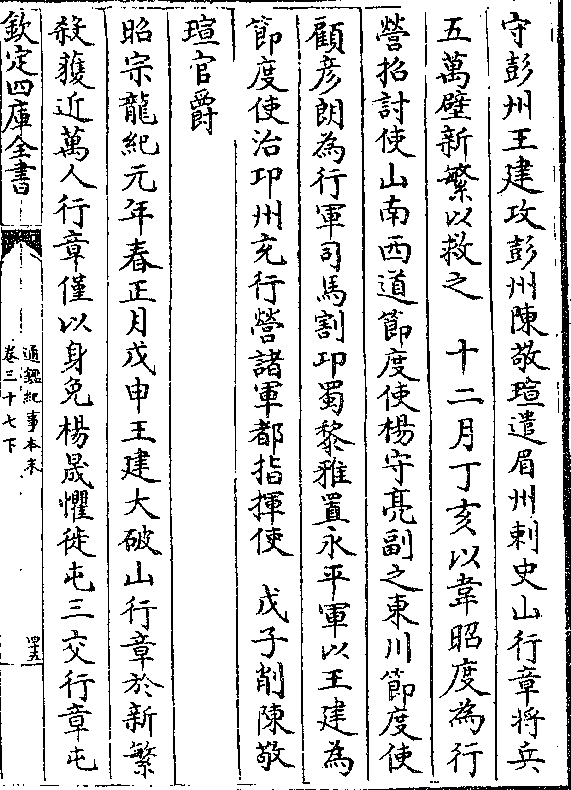 守彭州王建攻彭州陳敬瑄遣眉州刺史山行章將兵
五萬壁新繁以救之　十二月丁亥以韋昭度為行
營招討使山南西道節度使楊守亮副之東川節度使
顧彥朗為行軍司馬割邛蜀黎雅置永平軍以王建為
節度使治邛州充行營諸軍都指揮使　戊子削陳敬
瑄官爵
昭宗龍紀元年春正月戊申王建大破山行章於新繁
殺獲近萬人行章僅以身免楊晟懼徙屯三交行章屯
欽定四庫全書
通鑑紀事本末
卷三十七下
四十五